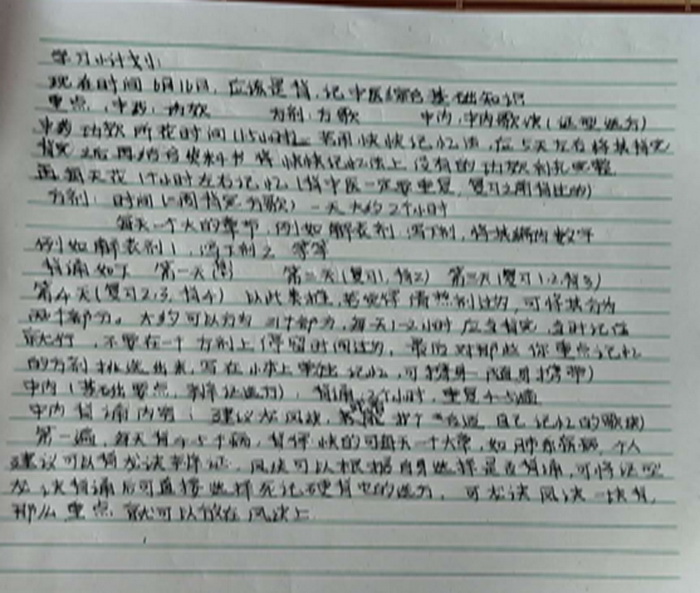 学习小计划:
现在时间6月16日, 应该是背, 记中医综合基础知识
重点, 中药: 功效 方剂: 方歌 中内: 中内歌诀(证型选方)
中药功效所花时间1.5小时 采用快快记忆法, 在5天左右将其背完
背完之后再结合资料书将快快记忆法上没有的功效补充完整
再每天花1个小时左右记忆(背中医一定要重复, 复习之前背过的)
方剂: 时间(一周背完方歌) 一天大约2个小时
每天一个大的章节, 例如解表剂, 泻下剂, 将其编为数字
例如解表剂1, 泻下剂2 等等
背诵如下 第一天(背1) 第二天(复习1, 背2) 第三天(复习1.2, 背3)
第4天(复习2.3, 背4) 以此类推, 若觉得清热剂过多, 可将其分为
两个部分。大约可以分为 个部分, 每天1-2小时应当背完, 当时记住
就行, 不要在一个方剂上停留时间过多, 最后对那些你重点记忆
的方剂挑选出来, 写在小本上单独记忆, 可
中内(基础要点, 辨证选方), 背诵 个小时, 重复4-5遍
中内背诵内容: 建议龙凤诀, 自己记忆的歌诀)
第一遍, 每天背4-5个病, 背得快的可每天一个大章, 如肺系疾病, 个人
建议可以背龙诀辨证, 凤诀可以根据自身选择是否背诵, 可将证型
龙诀背诵后可直接选择死记硬背它的选方, 可龙诀凤诀一块背,
那么重点就可以放在凤诀上